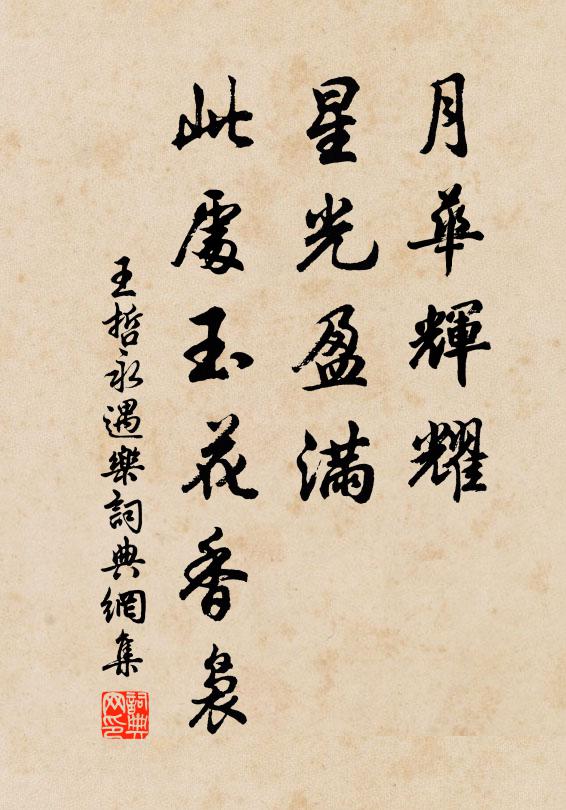 月華輝耀
星光盈滿
此處玉花香裊
王哲永遇樂詞典網集
詞典網印